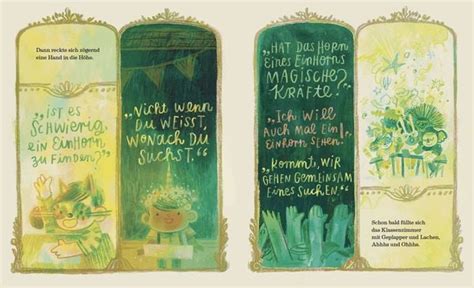 Dann reckte sich zögernd
eine Hand in die Höhe.
„IST ES
SCHWIERIG,
EIN EINHORN
ZU FINDEN?“
„Nicht wenn
DU WEISST,
WONACH DU
SUCHST.“
„HAT DAS HORN
EINES EINHORNS
MAGISCHE
KRÄFTE?“
„Ich WILL
AUCH MAL EIN
EINHORN SEHEN!“
„KOMMT, WIR
GEHEN GEMEINSAM
EINES SUCHEN.“
Schon bald füllte sich
das Klassenzimmer
mit Geplapper und Lachen,
Ahhhs und Ohhhs.